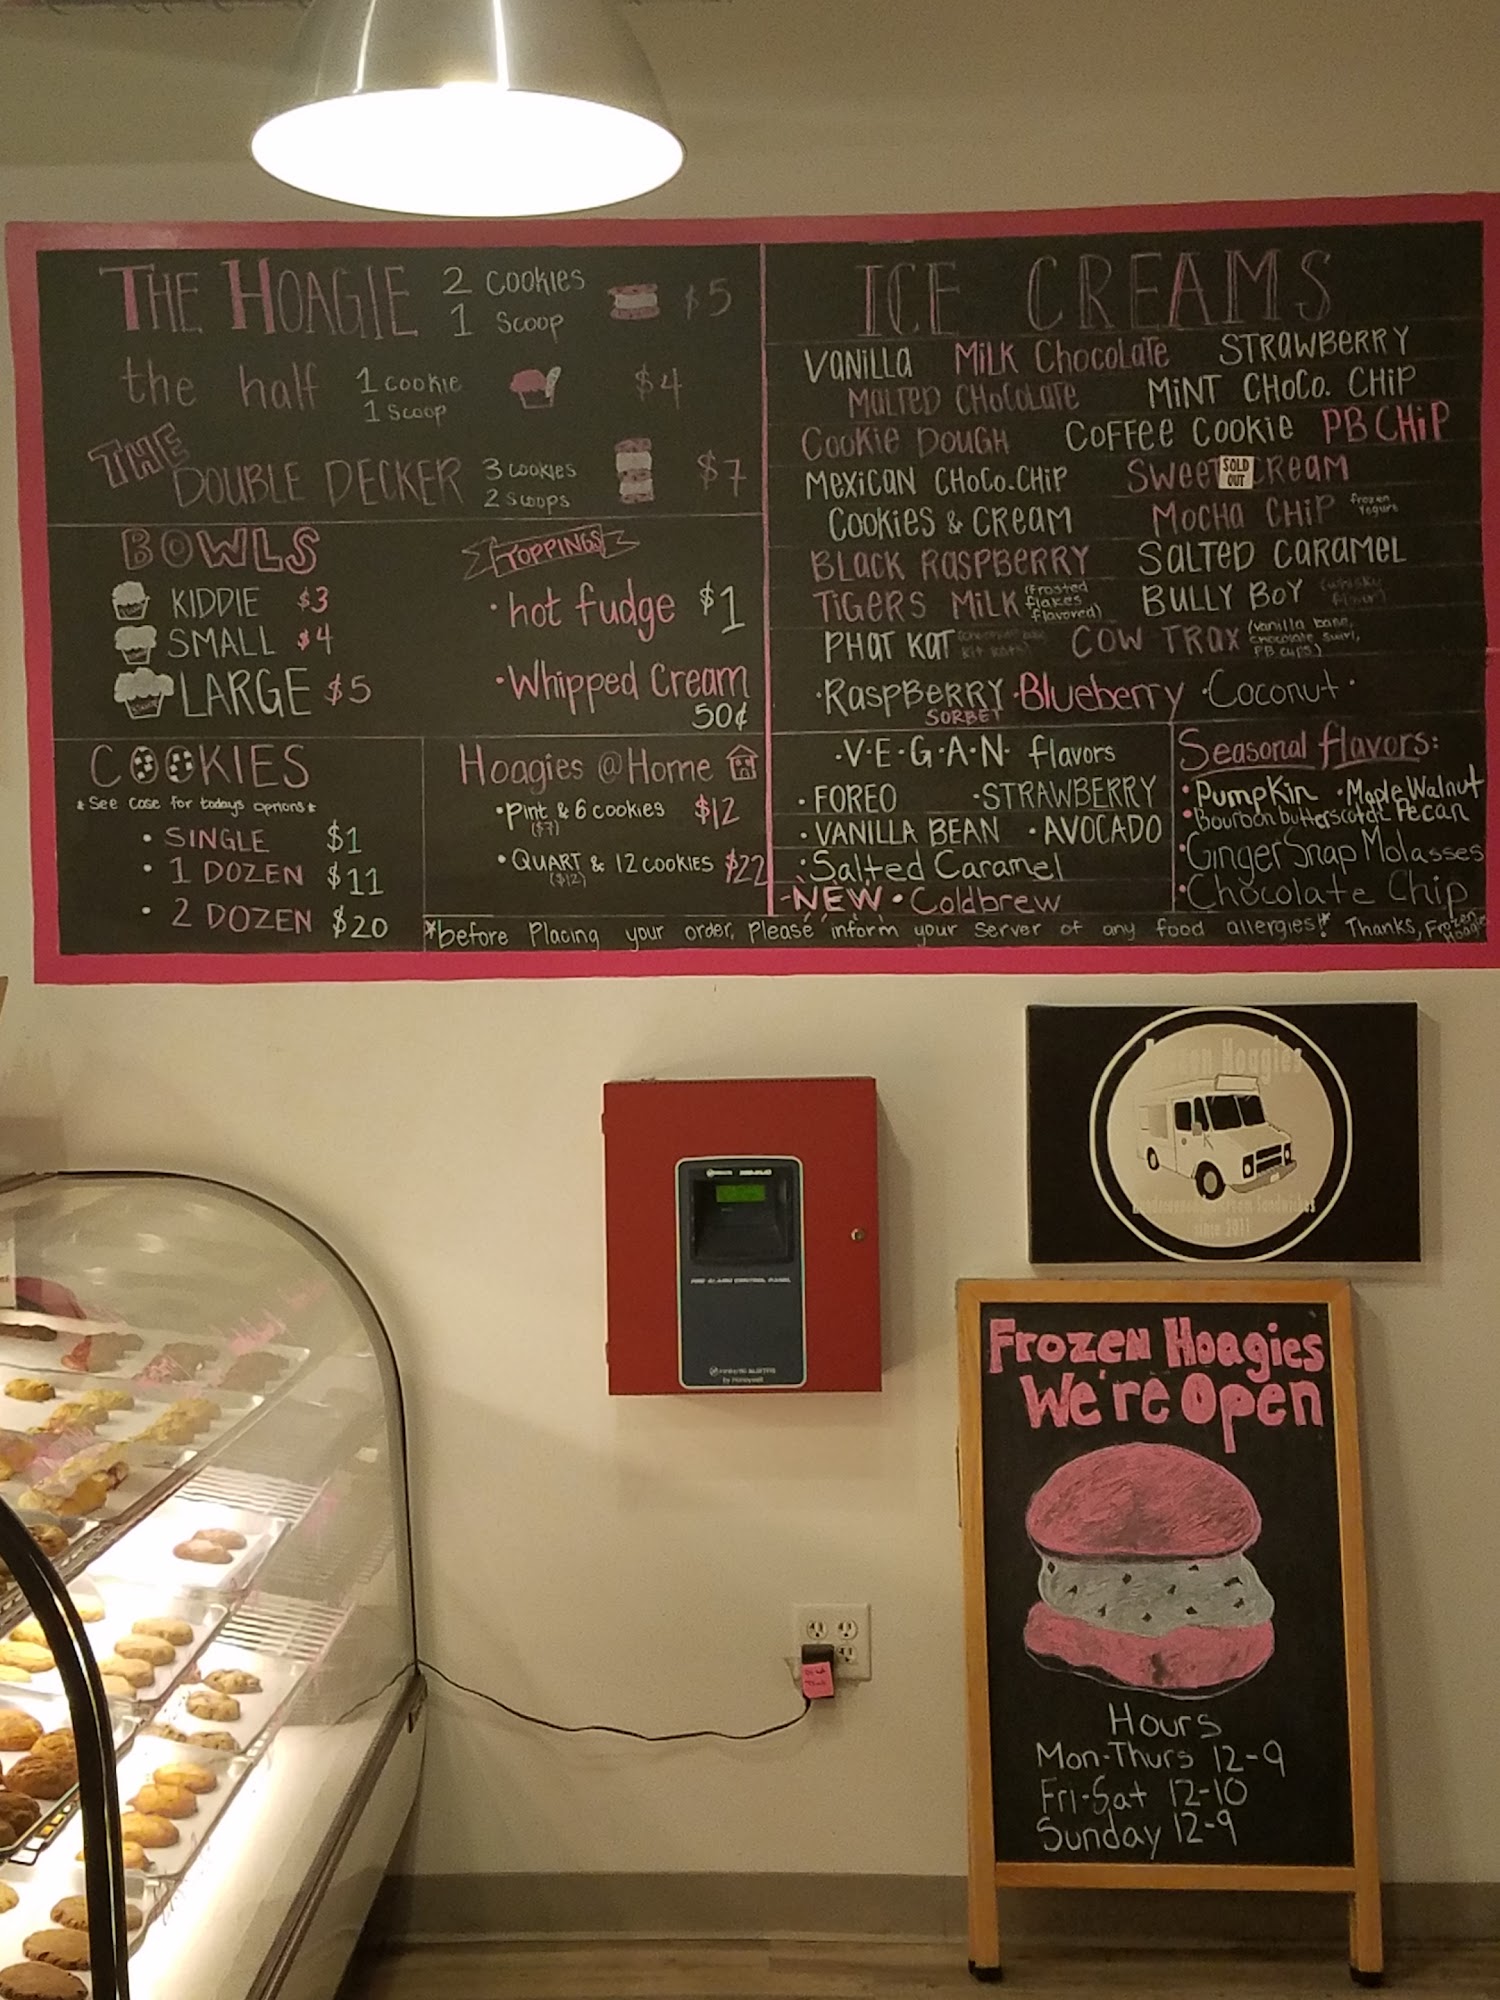 THE HOAGIE 2 Cookies 1 Scoop $5
the half 1 cookie 1 Scoop $4
THE DOUBLE DECKER 3 cookies 2 Scoops $7
BOWLS
KIDDIE $3
SMALL $4
LARGE $5
TOPPINGS
• hot fudge $1
• Whipped Cream 50¢
COOKIES
* See case for todays options *
• SINGLE $1
• 1 DOZEN $11
• 2 DOZEN $20
Hoagies @ Home
• Pint & 6 cookies $12
($7)
• QUART & 12 COOKIES $22
($12)
ICE CREAMS
VANILLA MILK CHOCOLATE STRAWBERRY
MALTED CHOCOLATE MINT CHOCO. CHIP
COOKIE DOUGH COFFEE COOKIE PB CHIP
MEXICAN CHOCO. CHIP SWEET CREAM
SOLD OUT
COOKIES & CREAM MOCHA CHIP frozen yogurt
BLACK RASPBERRY SALTED CARAMEL
TIGERS MILK (frosted flakes flavored) BULLY BOY (whisky
PHAT KAT COW TRAX (vanilla base, chocolate swirl, PB cups)
• RASPBERRY • Blueberry • Coconut •
SORBET
• V • E • G • A • N • flavors
• FOREO • STRAWBERRY
• VANILLA BEAN • AVOCADO
• Salted Caramel
-NEW • Coldbrew
Seasonal flavors:
• Pumpkin • Maple Walnut
• Bourbon butterscotch Pecan
• GingerSnap Molasses
• Chocolate Chip
*before Placing your order, Please inform your server of any food allergies!* Thanks, Frozen Hoagies
Frozen Hoagies
Ice Cream Sandwiches
since 2011
FIRE ALARM CONTROL PANEL
by Honeywell
Frozen Hoagies
We're Open
Hours
Mon-Thurs 12-9
Fri-Sat 12-10
Sunday 12-9